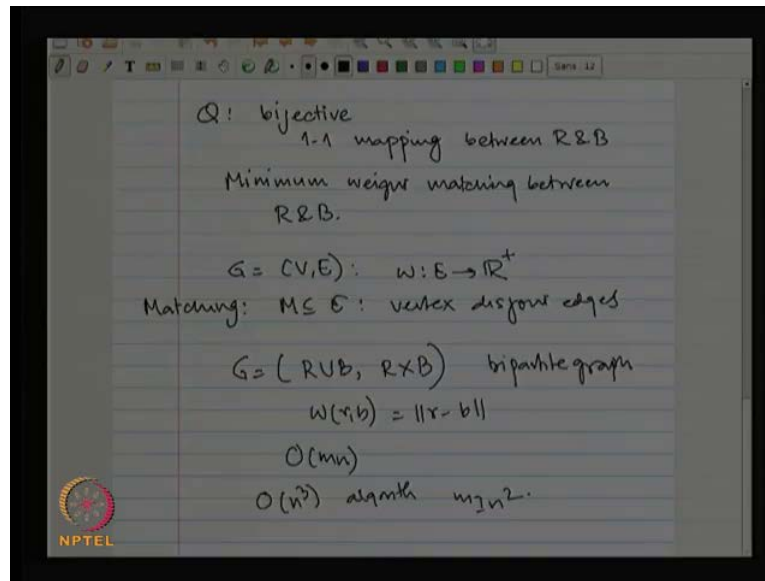 Q: bijective
1-1 mapping between R&B
Minimum weight matching between
R&B.
G = (V,E): w: E → ℝ⁺
Matching: M ⊆ E: vertex disjoint edges
G = (R∪B, R×B) bipartite graph
W(r,b) = ||r-b||
O(mn)
O(n³) algorith m = n².
NPTEL